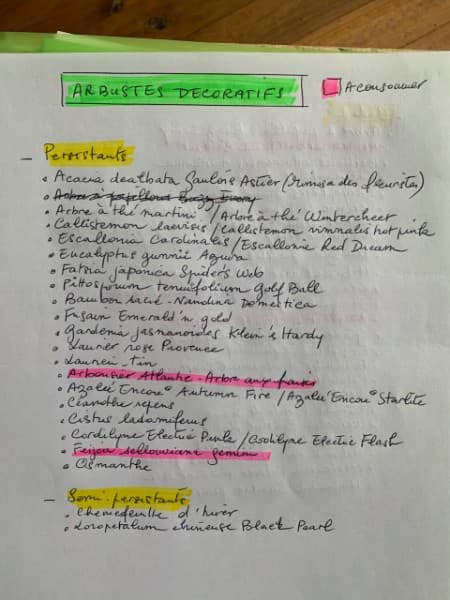 ARBUSTES DECORATIFS
A consommer
- Persistants
• Acacia dealbata Gaulois Astier (Mimosa des fleuristes)
• Arbre à papillons Buzz Ivory
• Arbre à thé martini / Arbre à thé Wintercheer
• Callistemon laevis / Callistemon viminalis hot pink
• Escallonia Cardinalis / Escallonia Red Dream
• Eucalyptus gunnii Azura
• Fatsia japonica Spider's Web
• Pittosporum tenuifolium Golf Ball
• Bambou sacré - Nandina Domestica
• Fusain Emerald'n gold
• Gardenia jasmanoides Klein's Hardy
• Laurier rose Provence
• Laurier-tin
• Arbousier Atlantic - Arbre aux fraises
• Azalée Encore® Autumn Fire / Azalée Encore® Starlite
• Céanothe repens
• Cistus ladamiferus
• Cordilyne Electric Punk / Cordilyne Electric Flash
• Feijoa sellowiana gemini
• Osmanthe
- Semi-persistants
• Chèvrefeuille d'hiver
• Loropetalum chinense Black Pearl